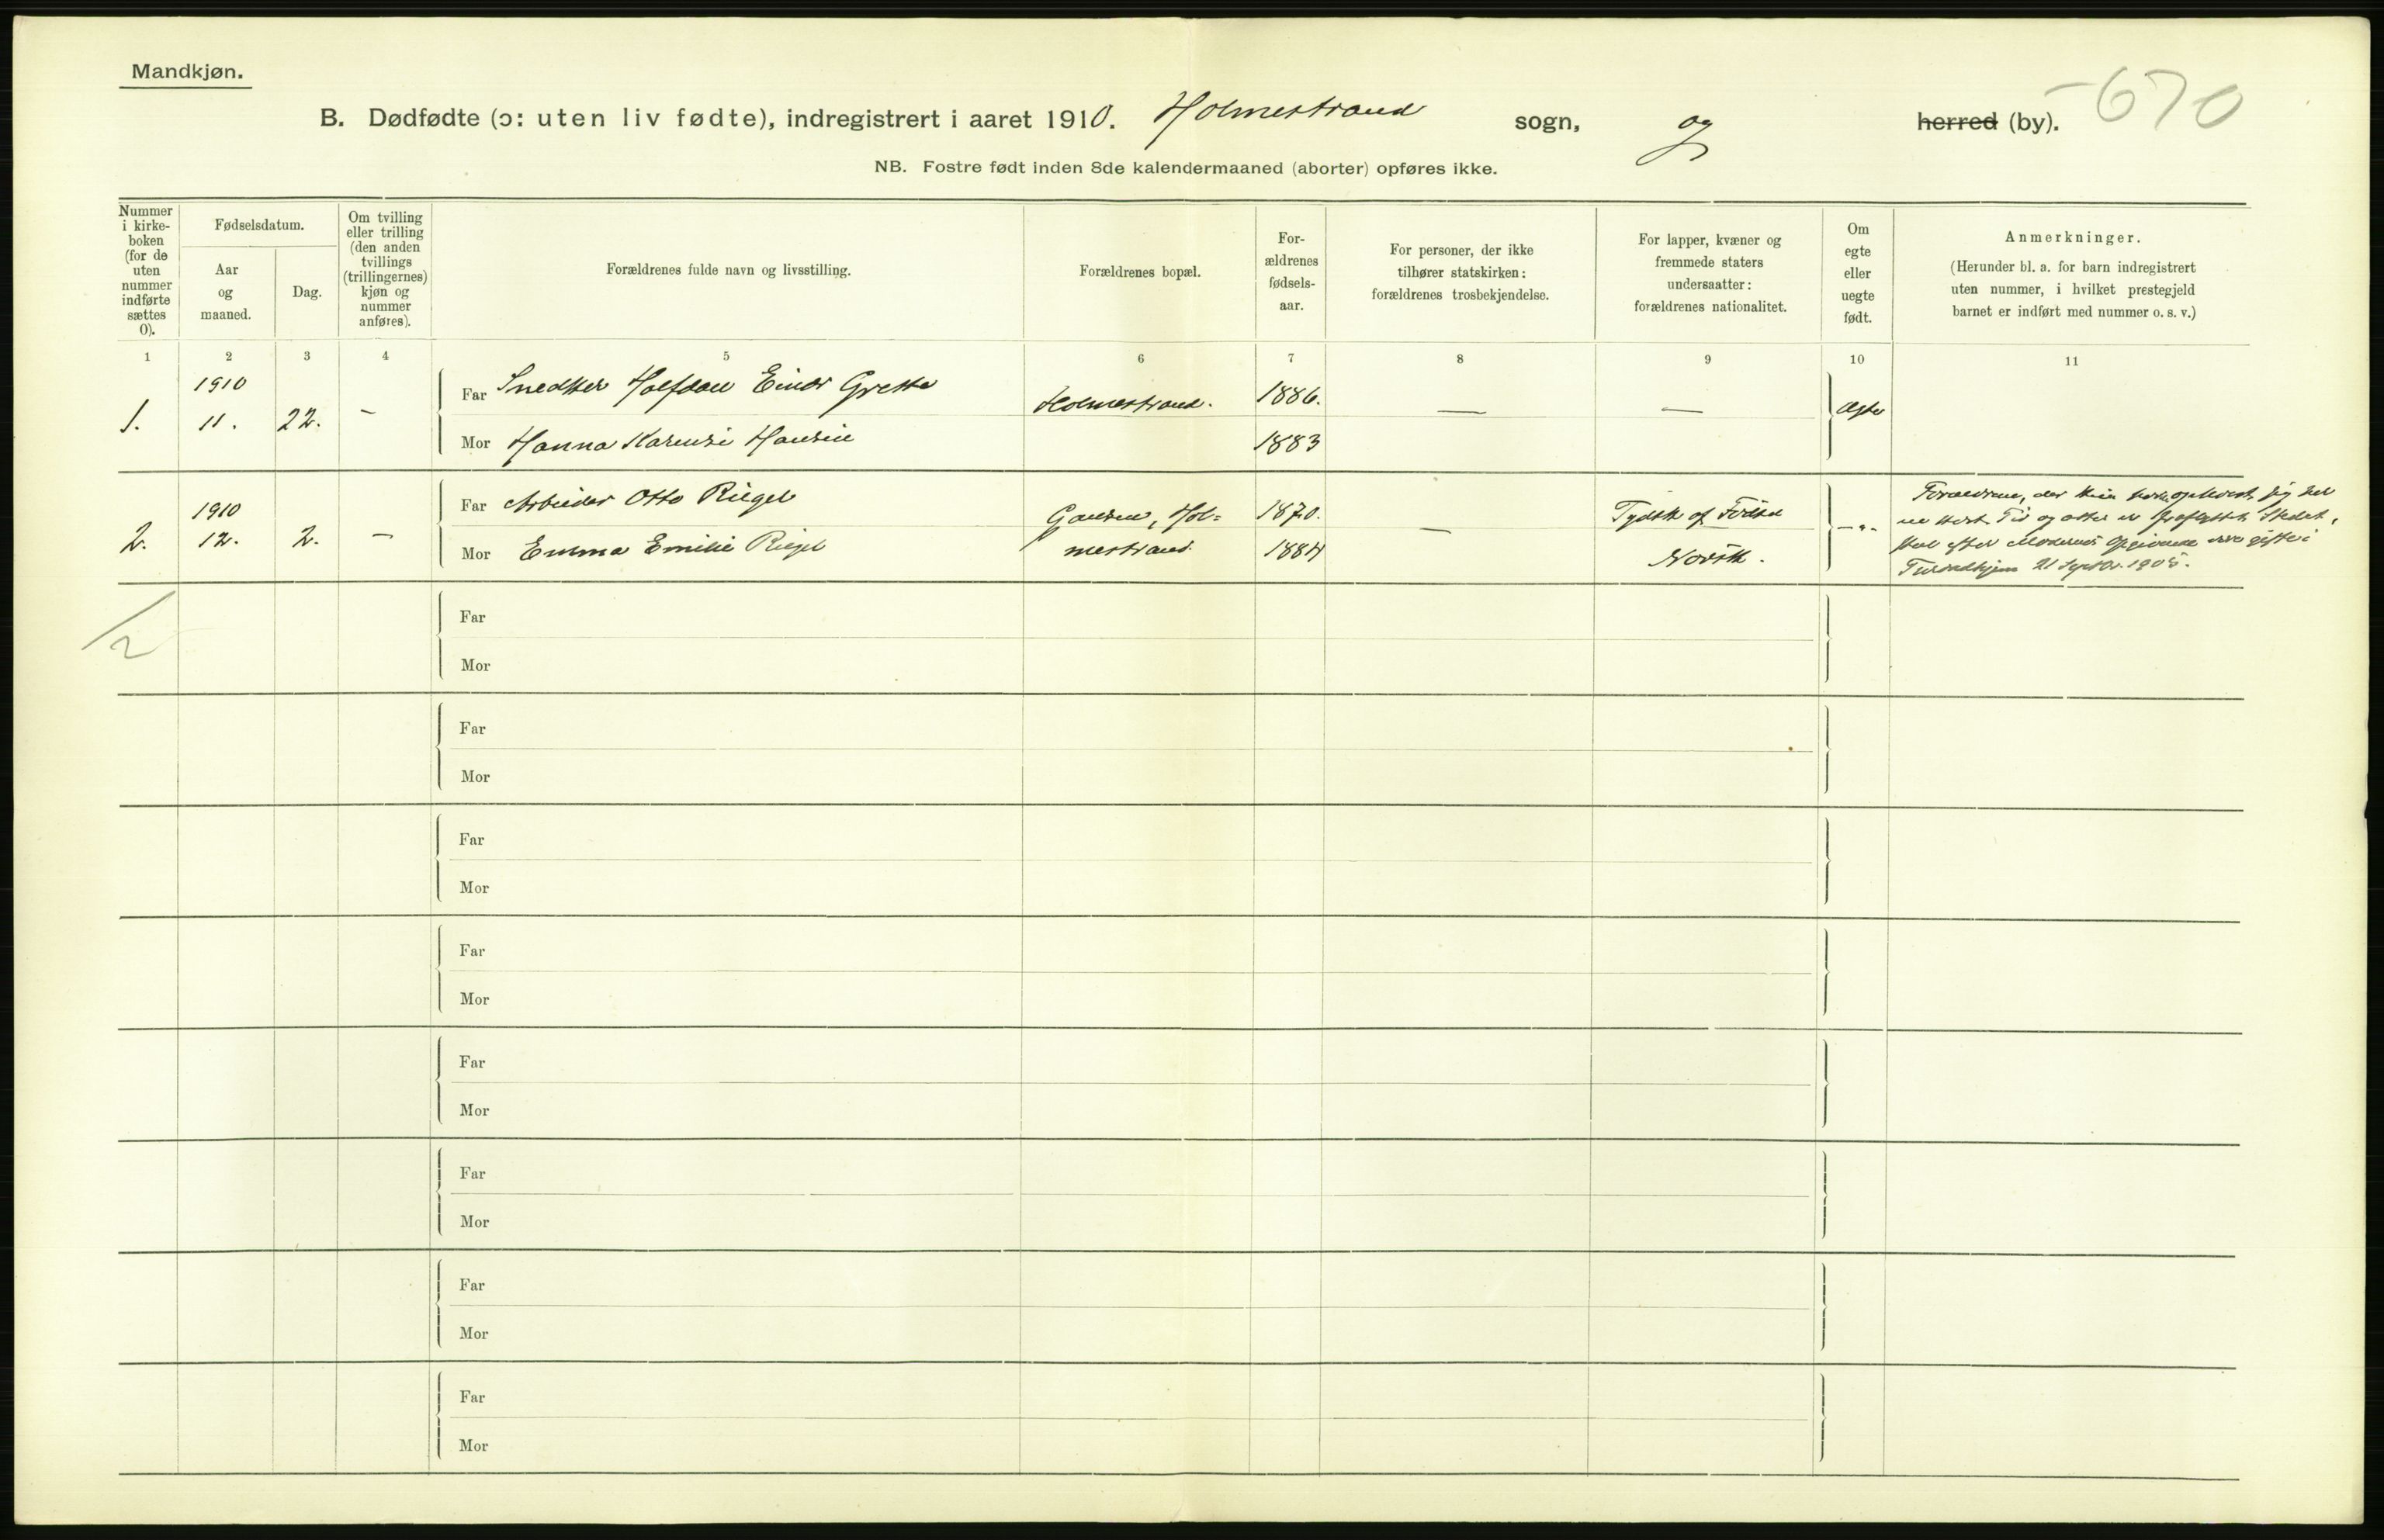 Mandkjøn.
-670
B. Dødfødte (ɔ: uten liv fødte), indregistrert i aaret 1910. Holmestrand sogn, og herred (by).
NB. Fostre født inden 8de kalendermaaned (aborter) opføres ikke.
Nummer
i kirke-
boken
(for de
uten
nummer
indførte
sættes
0).
Fødselsdatum.
Aar
og
maaned.
Dag.
Om tvilling
eller trilling
(den anden
tvillings
(trillingernes)
kjøn og
nummer
anføres).
Forældrenes fulde navn og livsstilling.
Forældrenes bopæl.
For-
ældrenes
fødsels-
aar.
For personer, der ikke
tilhører statskirken:
forældrenes trosbekjendelse.
For lapper, kvæner og
fremmede staters
undersaatter:
forældrenes nationalitet.
Om
egte
eller
uegte
født.
Anmerkninger.
(Herunder bl. a. for barn indregistrert
uten nummer, i hvilket prestegjeld
barnet er indført med nummer o. s. v.)
1 2 3 4 5 6 7 8 9 10 11
1910
1. 11. 22. –
Far Snedker Halfdan Einar Grette Holmestrand. 1886. — — Ægte
Mor Hanna Karensie Hansen 1883
1910
2. 12. 2. –
Far Arbeider Otto Riegel Gausen, Hol= 1870. — Tydsk af Fødsel –"–
Mor Emma Emilie Riegel mestrand. 1884 Norsk.
Forældrene, der kun har opholdt sig her
en kort Tid og atter er fraflyttet Stedet,
skal efter Moderens Opgivende være gifte i
Trondhjem 21 Septbr. 1905.
2
Far
Mor
Far
Mor
Far
Mor
Far
Mor
Far
Mor
Far
Mor
Far
Mor
Far
Mor